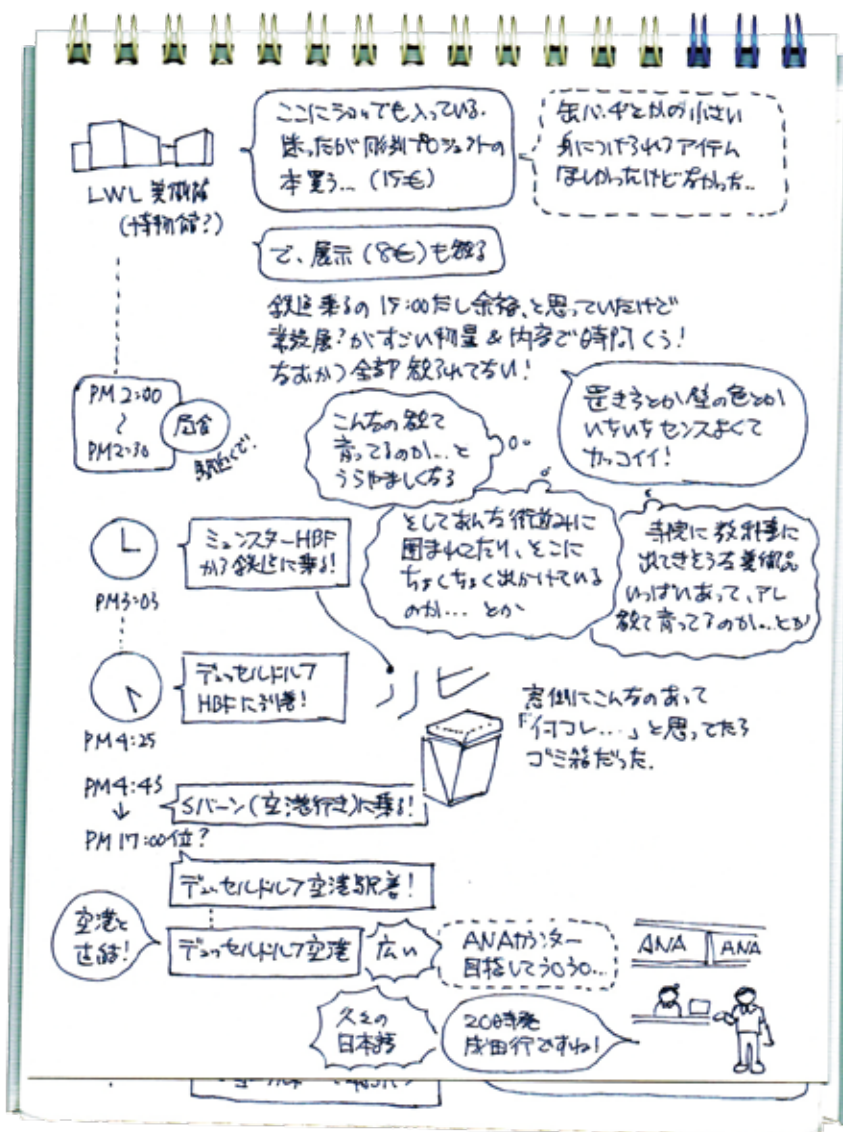 ここにショップも入っている.
迷ったが彫刻プロジェクトの
本買う... (15€)
缶バッヂとかの小さい
身につけられるアイテム
ほしかったけどなかった..
LWL 美術館
(博物館?)
で、展示(8€)も観る
鉄道乗るの15:00だし余裕、と思っていたけど
常設展?がすごい物量&内容で時間くう!
なおかつ全部観られてない!
PM 2:00
〜
PM2:30
昼食
駅近くで.
置き方とか壁の色とか
いちいちセンスよくて
カッコイイ!
こんなの観て
育ってるのか...と
うらやましくなる
そしてあんな街並みに
囲まれてたり、そこに
ちょくちょく出かけている
のか... とか
寺院に教科書に
出てきそうな美術品
いっぱいあって、アレ
観て育ってるのか...とか
PM3:03
ミュンスターHBF
から鉄道に乗る!
PM4:25
デュッセルドルフ
HBFに到着!
窓側にこんなのあって
「何コレ...」と思ってたら
ゴミ箱だった.
PM4:45
↓
PM17:00位?
Sバーン(空港行き)に乗る!
デュッセルドルフ空港駅着!
空港と
直結!
デュッセルドルフ空港
広い
ANAカウンター
目指してうろうろ...
ANA
ANA
久々の
日本語
20時発
成田行ですね!